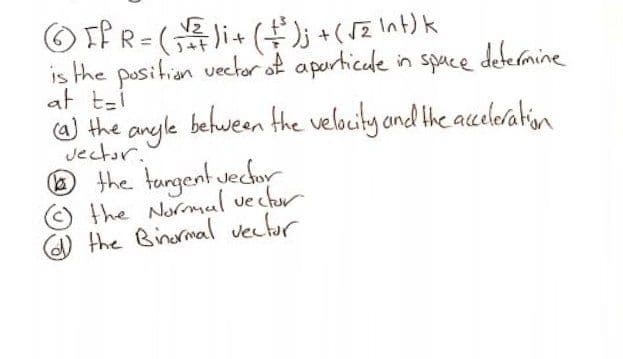 ⑥ If R = (√2 / 3+t)i + (t³/÷)j + (√2 lnt)k
is the position vector of aparticule in space determine
at t=1
(a) the angle between the velocity and the acceleration
vector.
ⓑ the tangent vector
ⓒ the Normal vector
ⓓ the Binormal vector